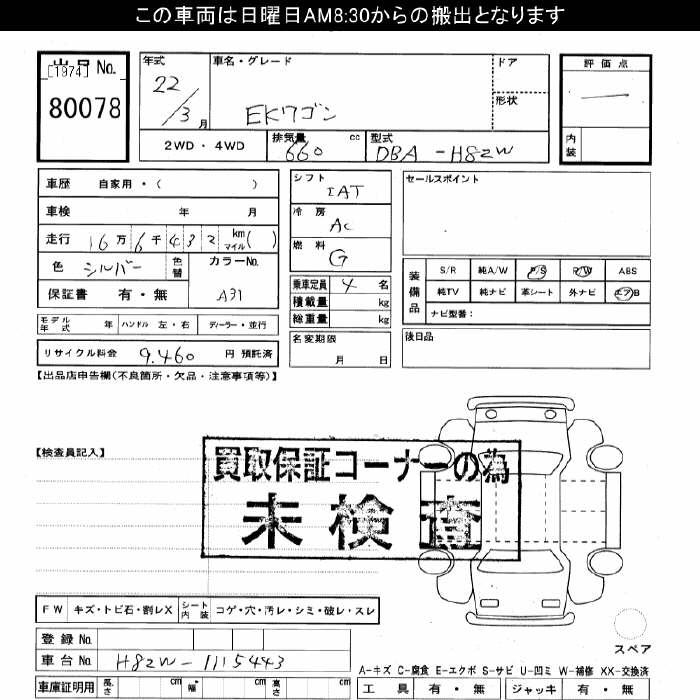 この車両は日曜日AM8:30からの搬出となります
出品 No.
[1974]
80078
年式 22/3月
車名・グレード
EKワゴン
ドア
形状
評価点
—
内装
2WD・4WD
排気量 660 cc
型式 DBA-H82W
車歴 自家用・( )
車検 年 月
走行 16万6千432 km マイル( )
色 シルバー 色替
カラーNo. A31
保証書 有・無
モデル年式 年 ハンドル 左・右 ディーラー・並行
リサイクル料金 9,460 円 預託済
シフト IAT
冷房 AC
燃料 G
乗車定員 4 名
積載量 kg
総重量 kg
名変期限 月 日
セールスポイント
装備品
S/R 純A/W P/S P/W ABS
純TV 純ナビ 革シート 外ナビ エアB
ナビ型番:
後日品
【出品店申告欄(不良箇所・欠品・注意事項等)】
【検査員記入】
買取保証コーナーの為
未検査
FW キズ・トビ石・割レX シート内装 コゲ・穴・汚レ・シミ・破レ・スレ
登録 No.
車台 No. H82W-1115443
車庫証明用 長さ cm 幅 cm 高さ cm
スペア
A-キズ C-腐食 E-エクボ S-サビ U-凹ミ W-補修 XX-交換済
工具 有・無 ジャッキ 有・無